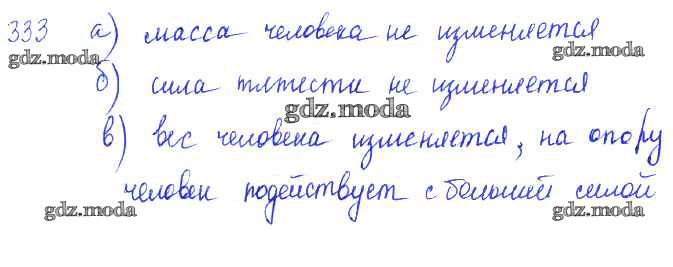 333 а) масса человека не изменяется
gdz.moda gdz.moda
б) сила тяжести не изменяется
gdz.moda
в) вес человека изменяется, на опору
человек подействует с большей силой
gdz.moda gdz.moda